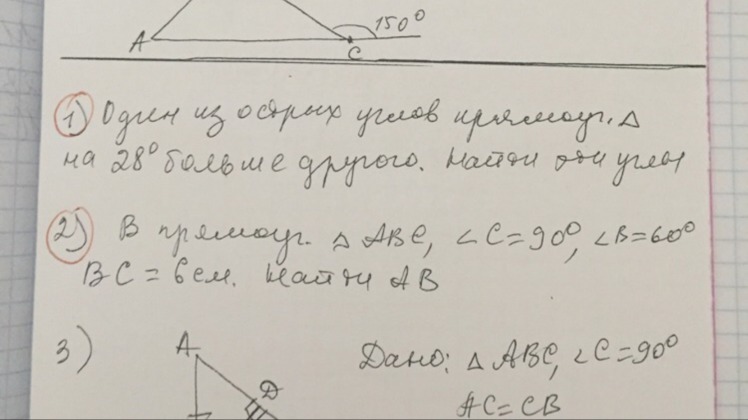 A
C
150°
1) Один из острых углов прямоуг. △
на 28° больше другого. Найти эти углы
2) В прямоуг. △ ABC, ∠C=90°, ∠B=60°
BC = 6 см. Найти AB
3)
A
D
Дано: △ ABC, ∠C=90°
AC=CB